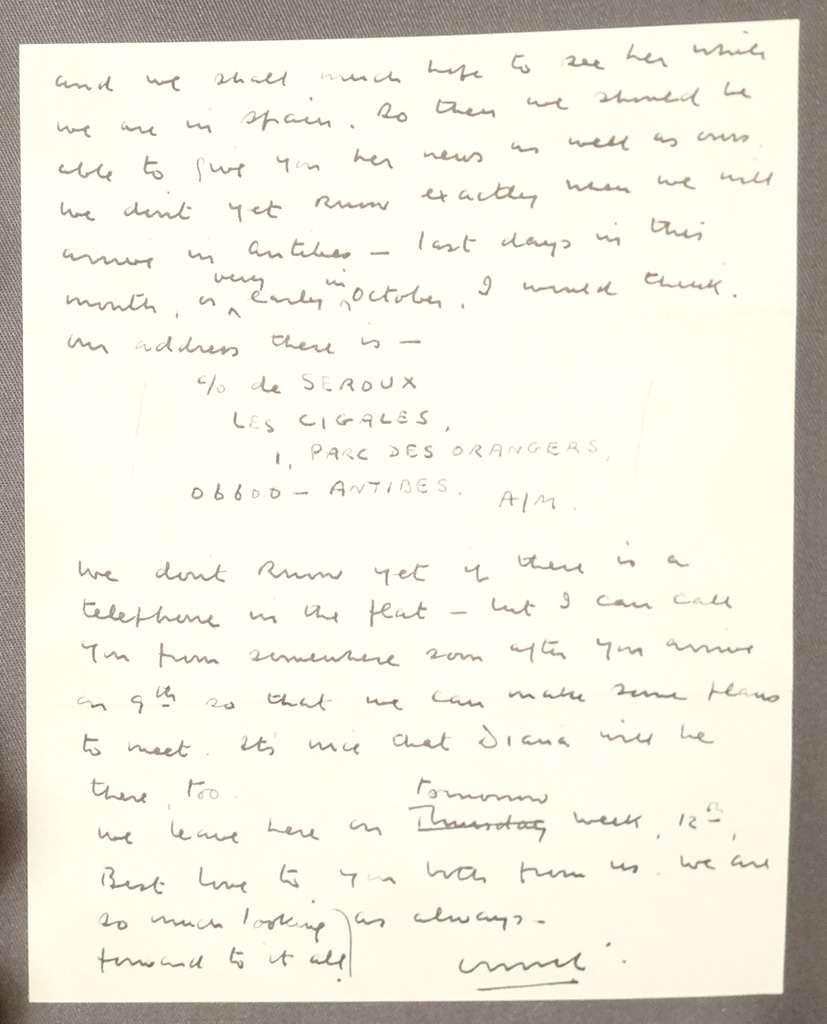 and we shall much hope to see her while
we are in Spain. So then we should be
able to give you her news as well as ours.
We don't yet know exactly when we will
arrive in Antibes – last days in this
month, or very early in October, I would think.
Our address there is –
c/o de SEROUX
LES CIGALES,
1, PARC DES ORANGERS,
06600 – ANTIBES. A/M.
We don't know yet if there is a
telephone in the flat – but I can call
you from somewhere soon after you arrive
on 9th so that we can make some plans
to meet. It's nice that Diana will be
there, too.
We leave here on Thursday tomorrow week, 12th,
Best love to you both from us. We are
so much looking as always –
forward to it all